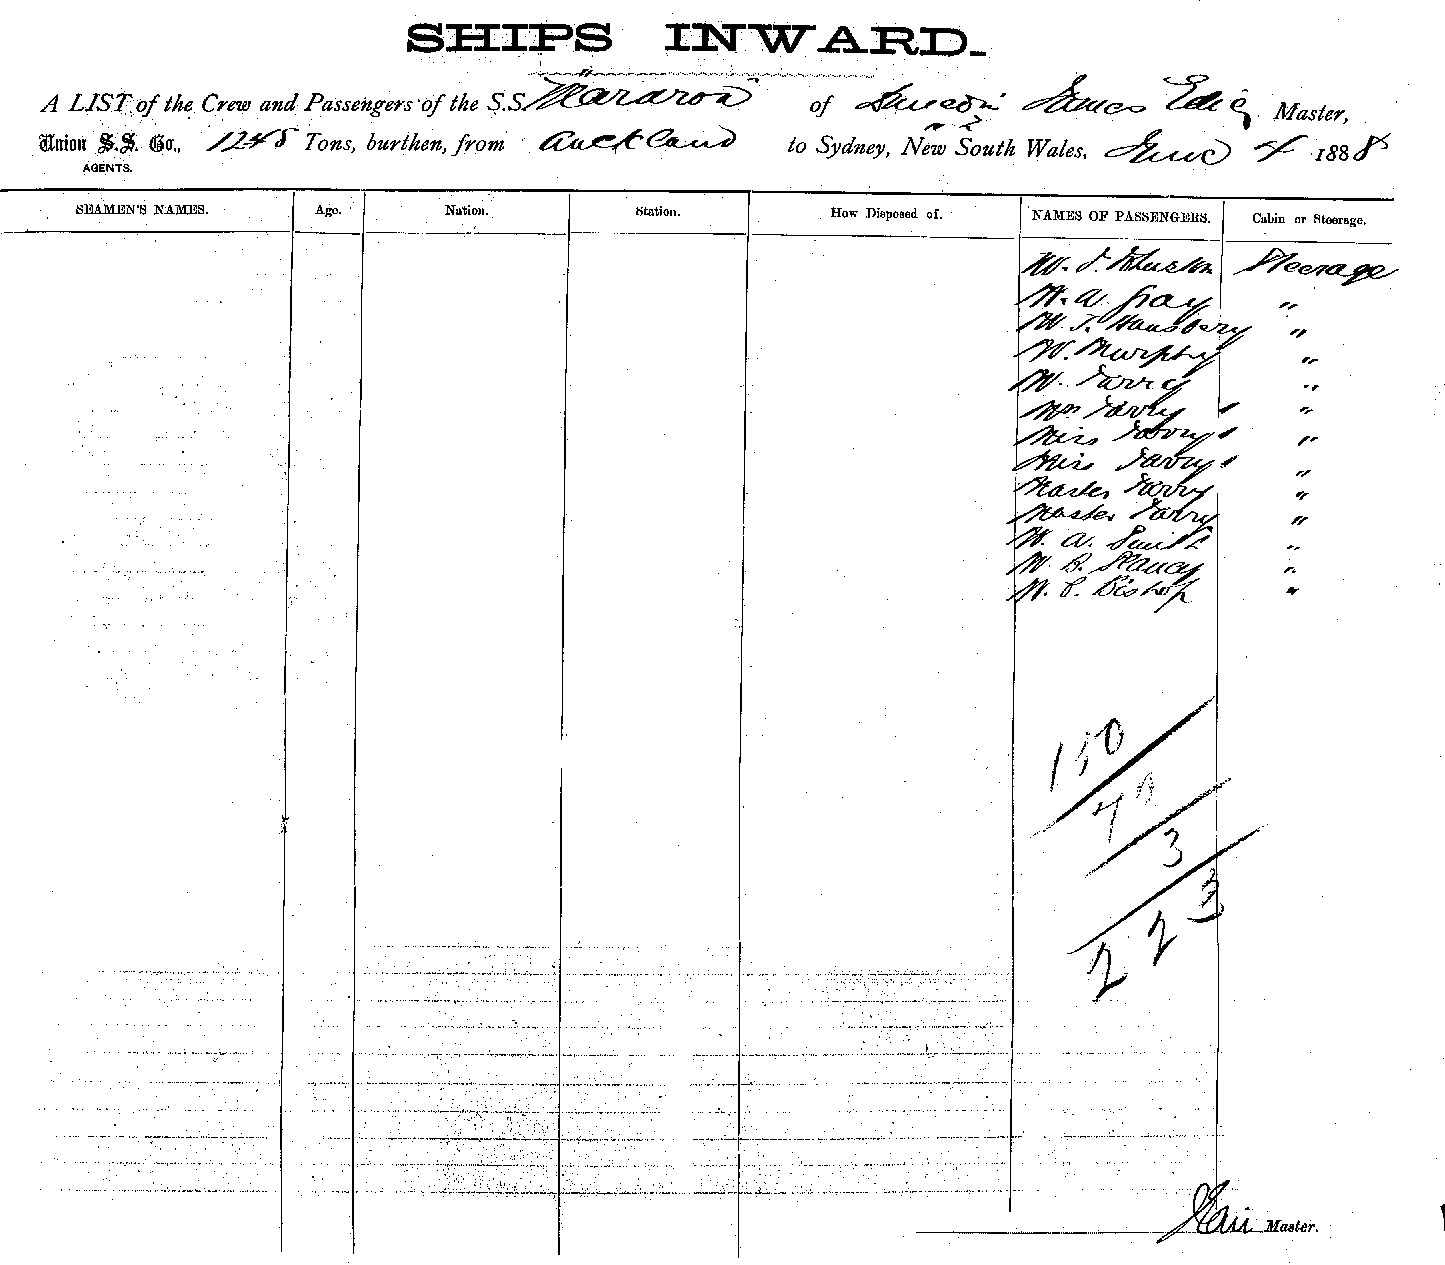 SHIPS INWARD.
A LIST of the Crew and Passengers of the S.S. Wararon of Dunedin James Edie Master,
Union S.S. Co., 1248 Tons, burthen, from Auckland to Sydney, New South Wales, June 4 1888
AGENTS.
SEAMEN'S NAMES. Age. Nation. Station. How Disposed of. NAMES OF PASSENGERS. Cabin or Steerage.
M. J. Steerage
M. A. Gray "
M. T. Hansbery "
M. Murphy "
M. Farry "
Mrs Farry "
Miss Farry "
Miss Farry "
Master Farry "
Master Farry "
M. A. Smith "
M. B. Clancy "
M. C. Bishop "
150
70
3
223
Master.